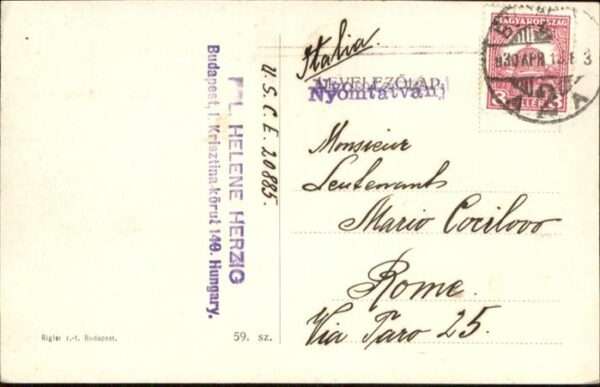 Italia.
MAGYARORSZÁG
930 APR 13
LEVELEZŐLAP
Nyomtatvány
Monsieur
Leutenant
Mario
Rome.
Via Taro 25.
U. S. C. E. 20885.
HELENE HERZIG
Budapest, I. Krisztina-körut 149. Hungary.
Rigler r.-t. Budapest.
59. sz.